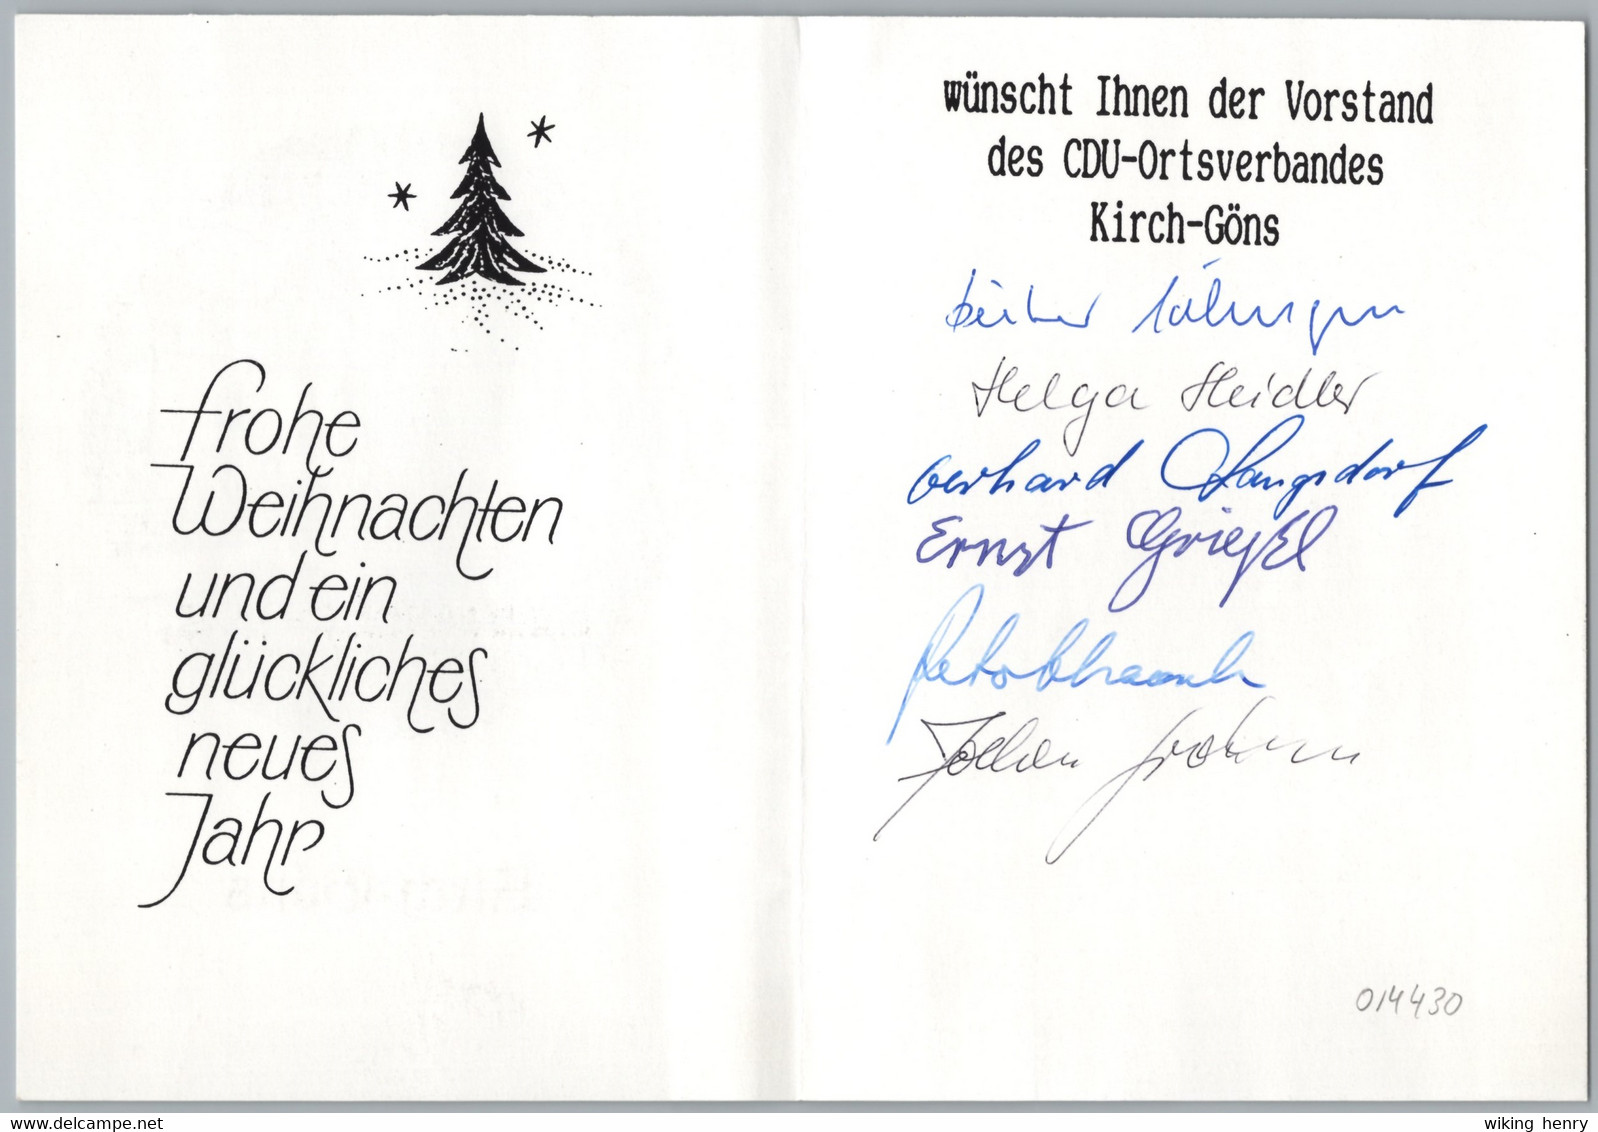 frohe
Weihnachten
und ein
glückliches
neues
Jahr
wünscht Ihnen der Vorstand
des CDU-Ortsverbandes
Kirch-Göns
Helga Heidler
Gerhard Langsdorf
Ernst
014430
wiking henry